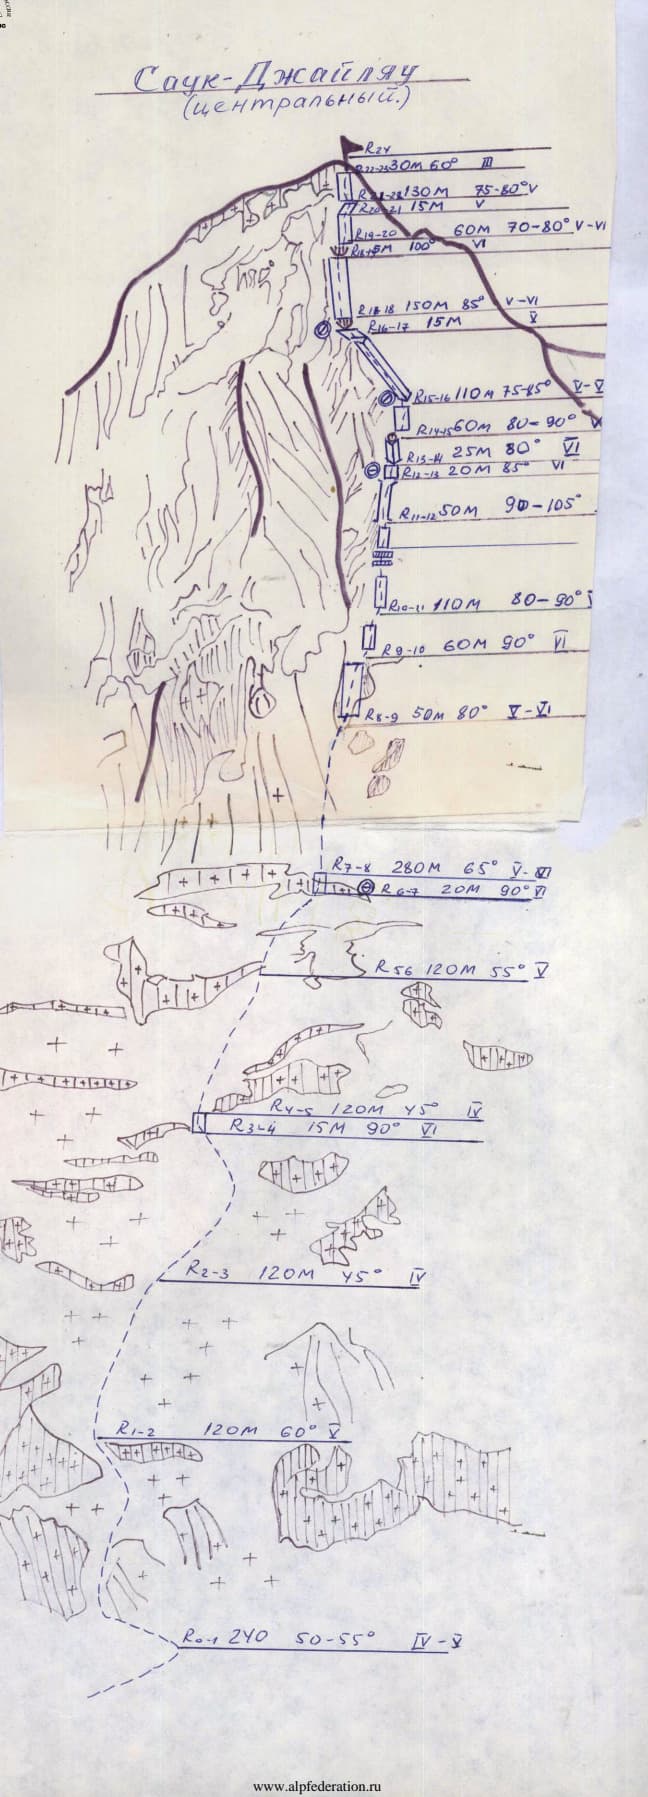 Саук-Джайляу
(центральный.)
R24
R22-23 30м 60° III
R21-22 130м 75-80° V
R20-21 15м V
R19-20 60м 70-80° V-VI
R18-19 5м 100° VI
R17-18 150м 85° V-VI
R16-17 15м V
R15-16 110м 75-85° V-V
R14-15 60м 80-90° V
R13-14 25м 80° VI
R12-13 20м 85° VI
R11-12 50м 90-105°
R10-11 110м 80-90°
R9-10 60м 90° VI
R8-9 50м 80° V-VI
R7-8 280м 65° V-VI
R6-7 20м 90° VI
R56 120м 55° V
R4-5 120м 45° IV
R3-4 15м 90° VI
R2-3 120м 45° IV
R1-2 120м 60° V
R0-1 240 50-55° IV-V
www.alpfederation.ru